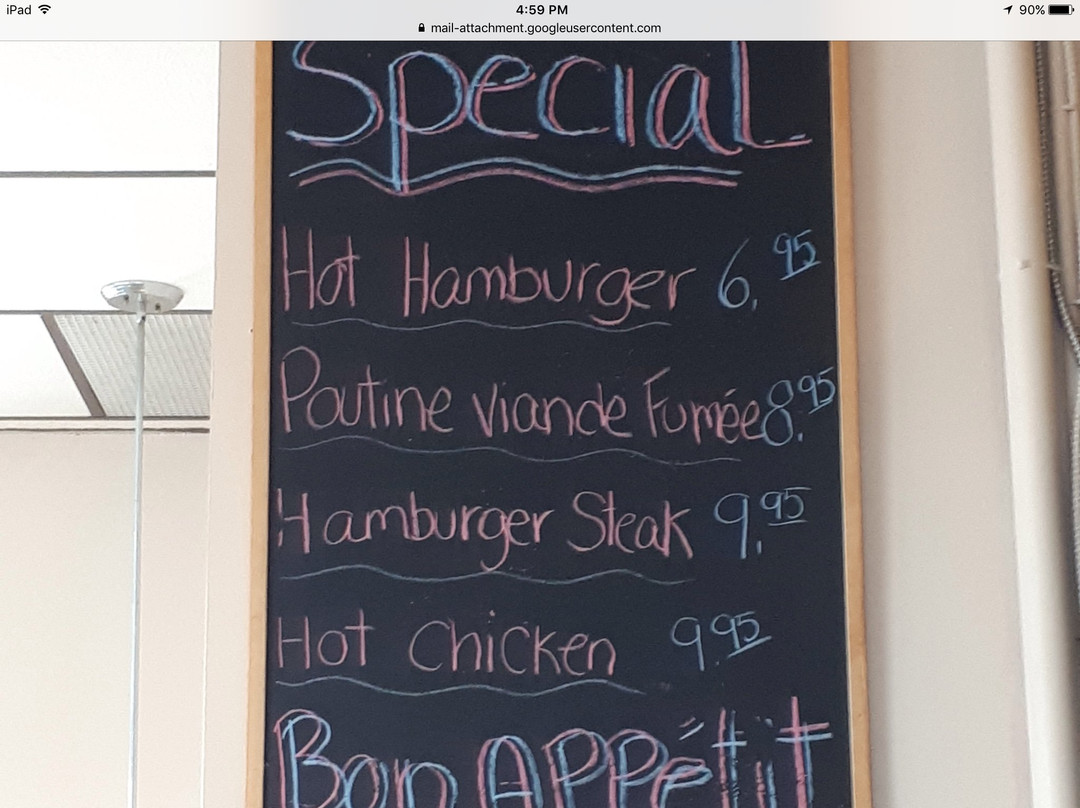 iPad 4:59 PM 90%
mail-attachment.googleusercontent.com
Special
Hot Hamburger 6,95
Poutine Viande Fumée 8.95
Hamburger Steak 9.95
Hot Chicken 9.95
Bon APPétit